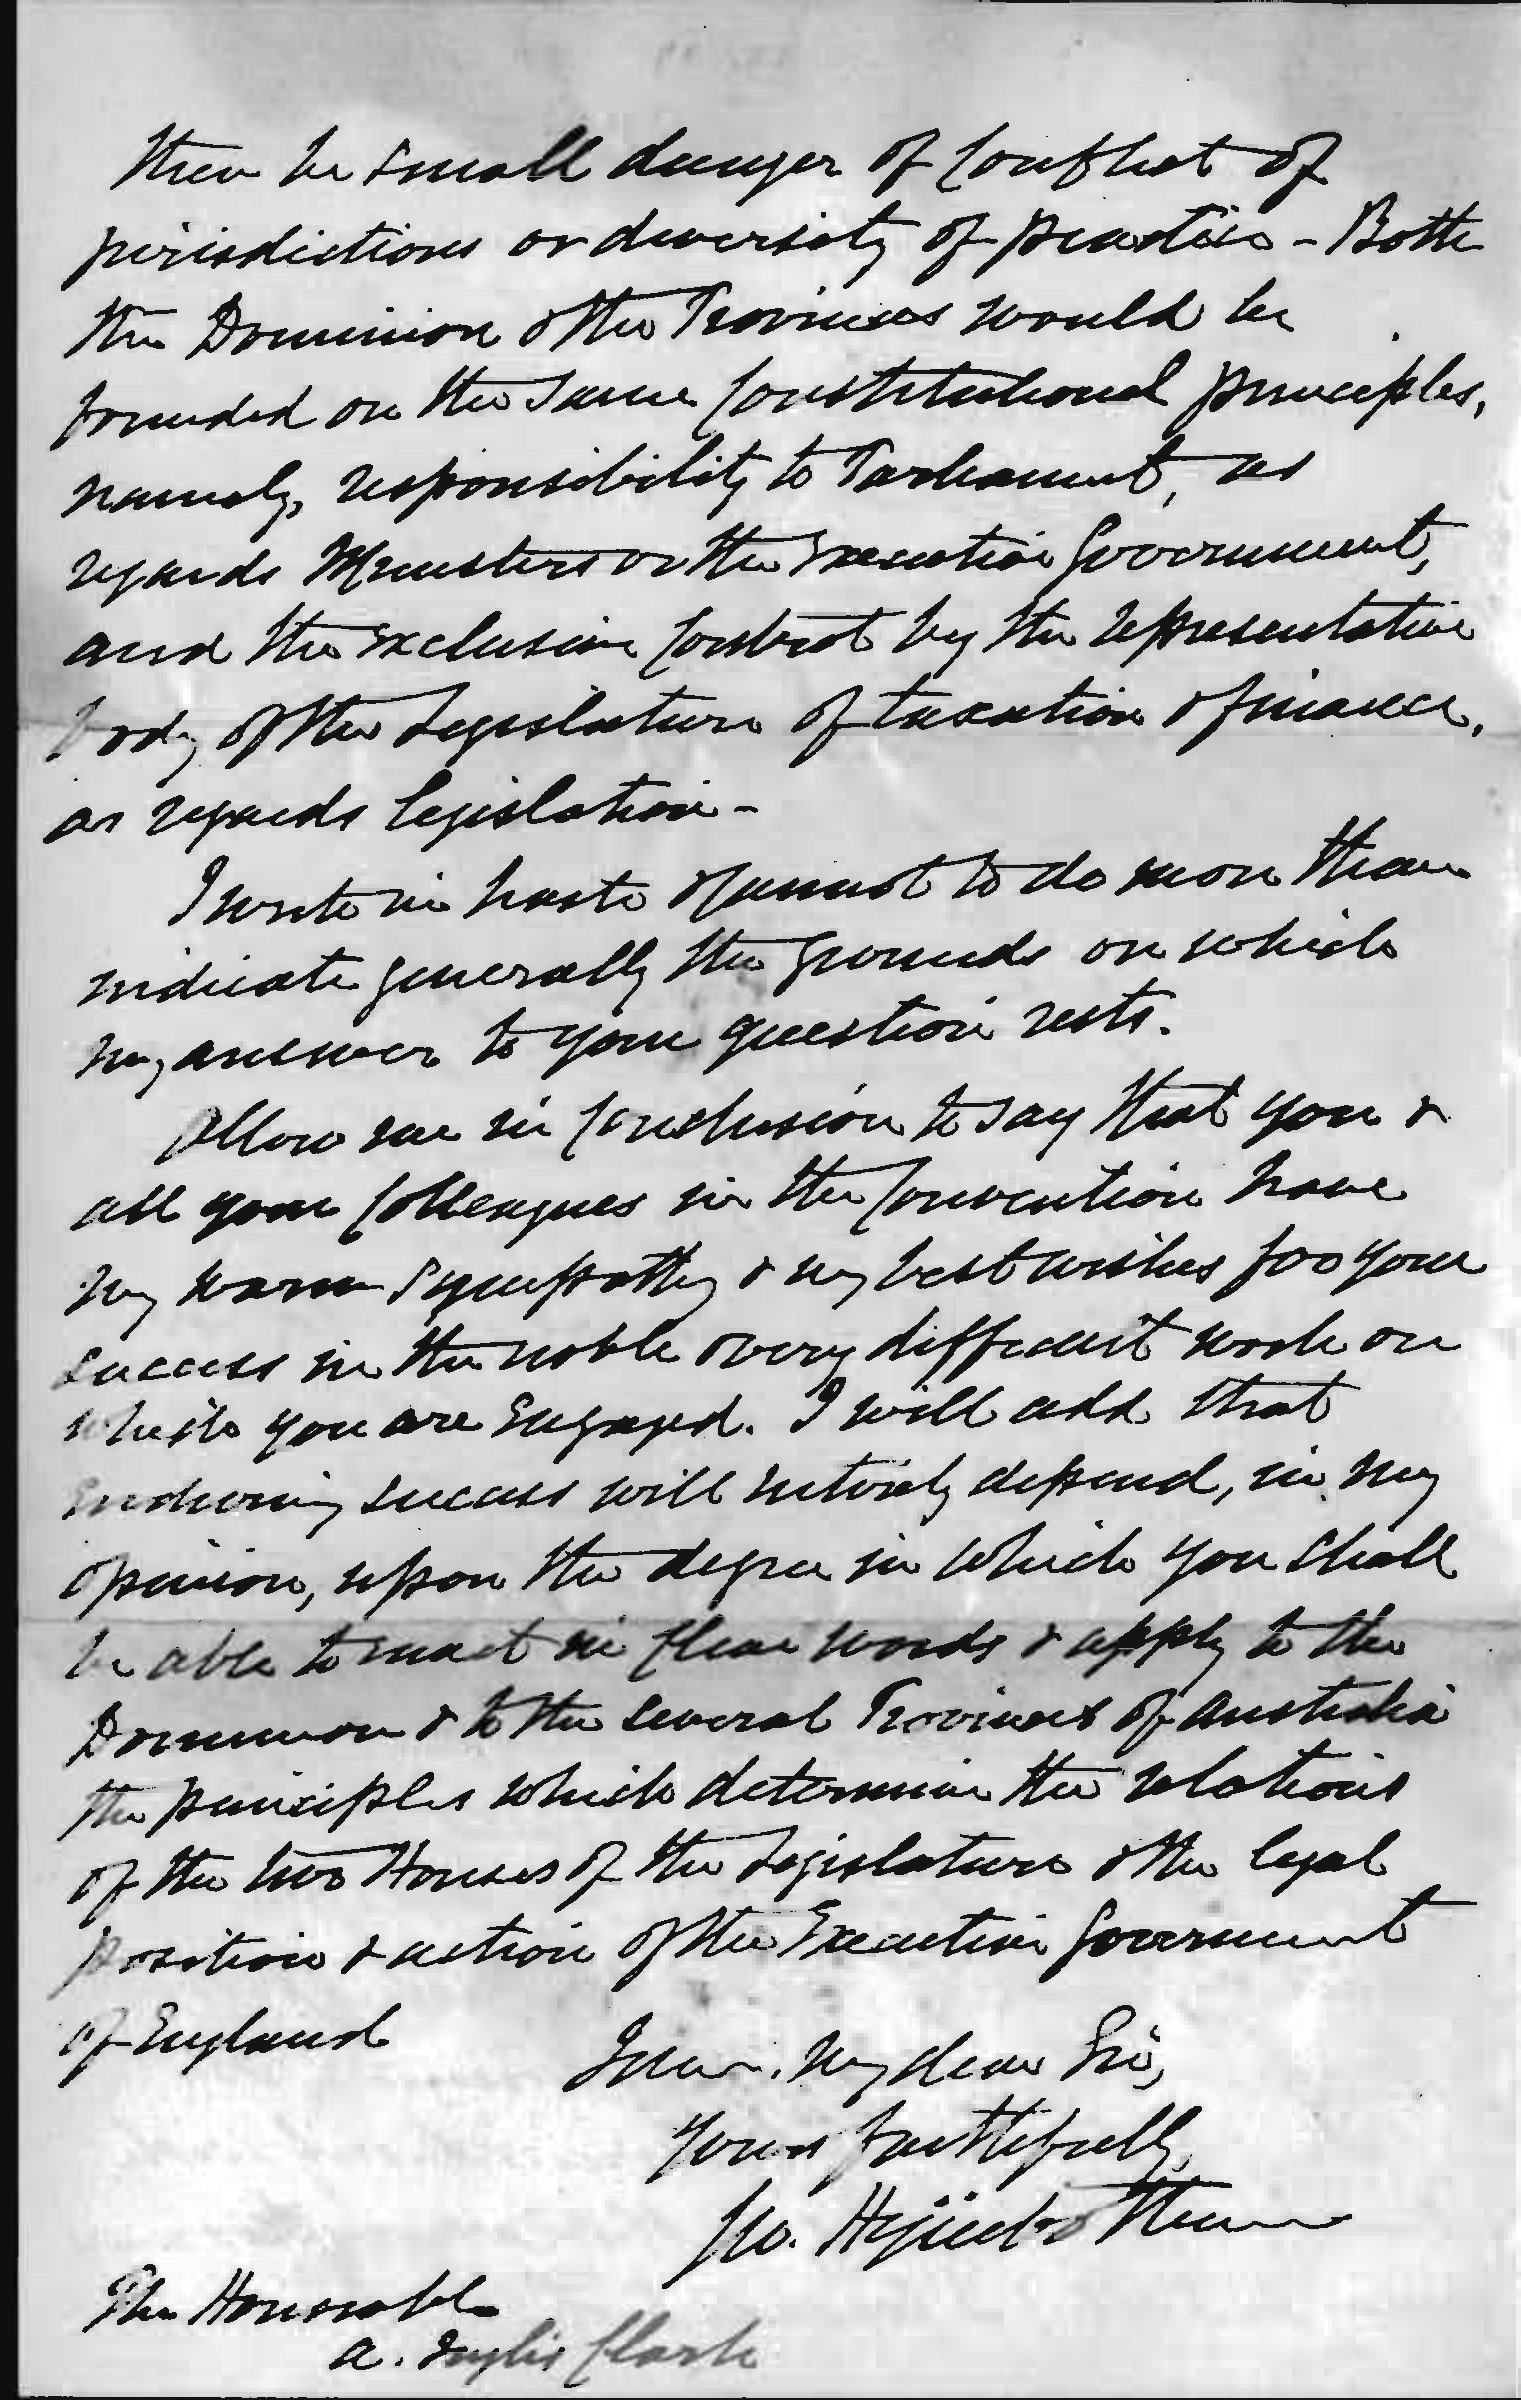 there be small danger of conflict of
jurisdictions or diversity of practice - Both
the Dominion & the Provinces would be
founded on the same Constitutional principles,
namely, responsibility to Parliament, as
regards Ministers or the Executive Government,
and the exclusive control by the representative
body of the Legislature of taxation & finance,
as regards legislation -
I write in haste & cannot to do more than
indicate generally the grounds on which
my answer to your question rests.
Allow me in conclusion to say that you &
all your Colleagues in the Convention have
my warm sympathy & my best wishes for your
success in the noble & very difficult work on
which you are engaged. I will add that
enduring success will entirely depend, in my
opinion, upon the degree in which you shall
be able to enact in clear words & apply to the
Dominion & to the several Provinces of Australia
the principles which determine the relations
of the two Houses of the Legislature & the legal
position & action of the Executive Government
of England
my dear Sir,
Yours faithfully,
The Honorable
A. Inglis Clark